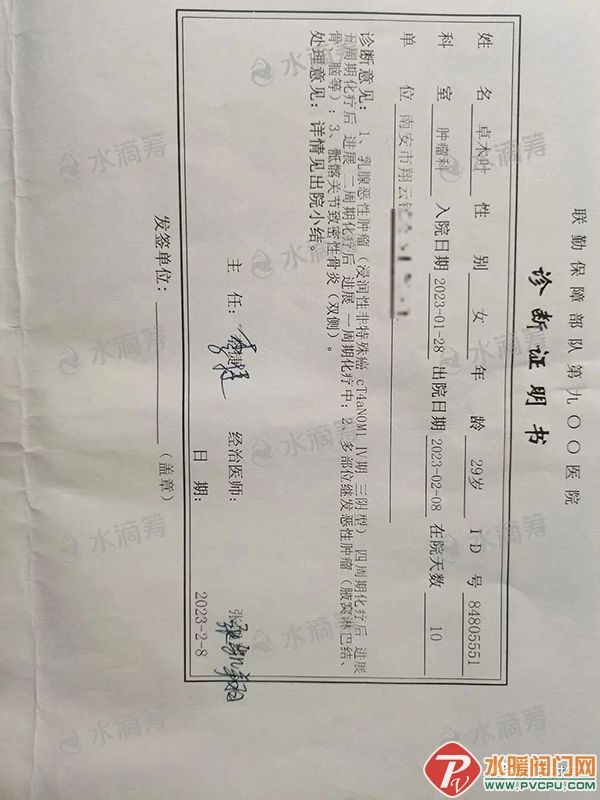 联勤保障部队第九〇〇医院
诊断证明书
姓 名 卓木叶 性 别 女 年 龄 29岁 ID 号 84805551
科 室 肿瘤科 入院日期 2023-01-28 出院日期 2023-02-08 在院天数 10
单 位 南安市翔云
诊断意见：1、乳腺恶性肿瘤（浸润性非特殊癌 cT4aN0M1 IV期 三阴型） 四周期化疗后 进展
五周期化疗后 进展 二周期化疗后 进展 一周期化疗中；2、多部位继发恶性肿瘤（腋窝淋巴结、
骨、脑等）；3、骶髂关节致密性骨炎（双侧）。
处理意见：详情见出院小结。
主 任：
经治医师：
张
日 期：
2023-2-8
发签单位：
（盖章）
水滴筹
水滴筹
水滴筹
水滴筹
水滴筹
水滴筹
水滴筹
水滴筹
水暖阀门网
WWW.PVCPU.COM